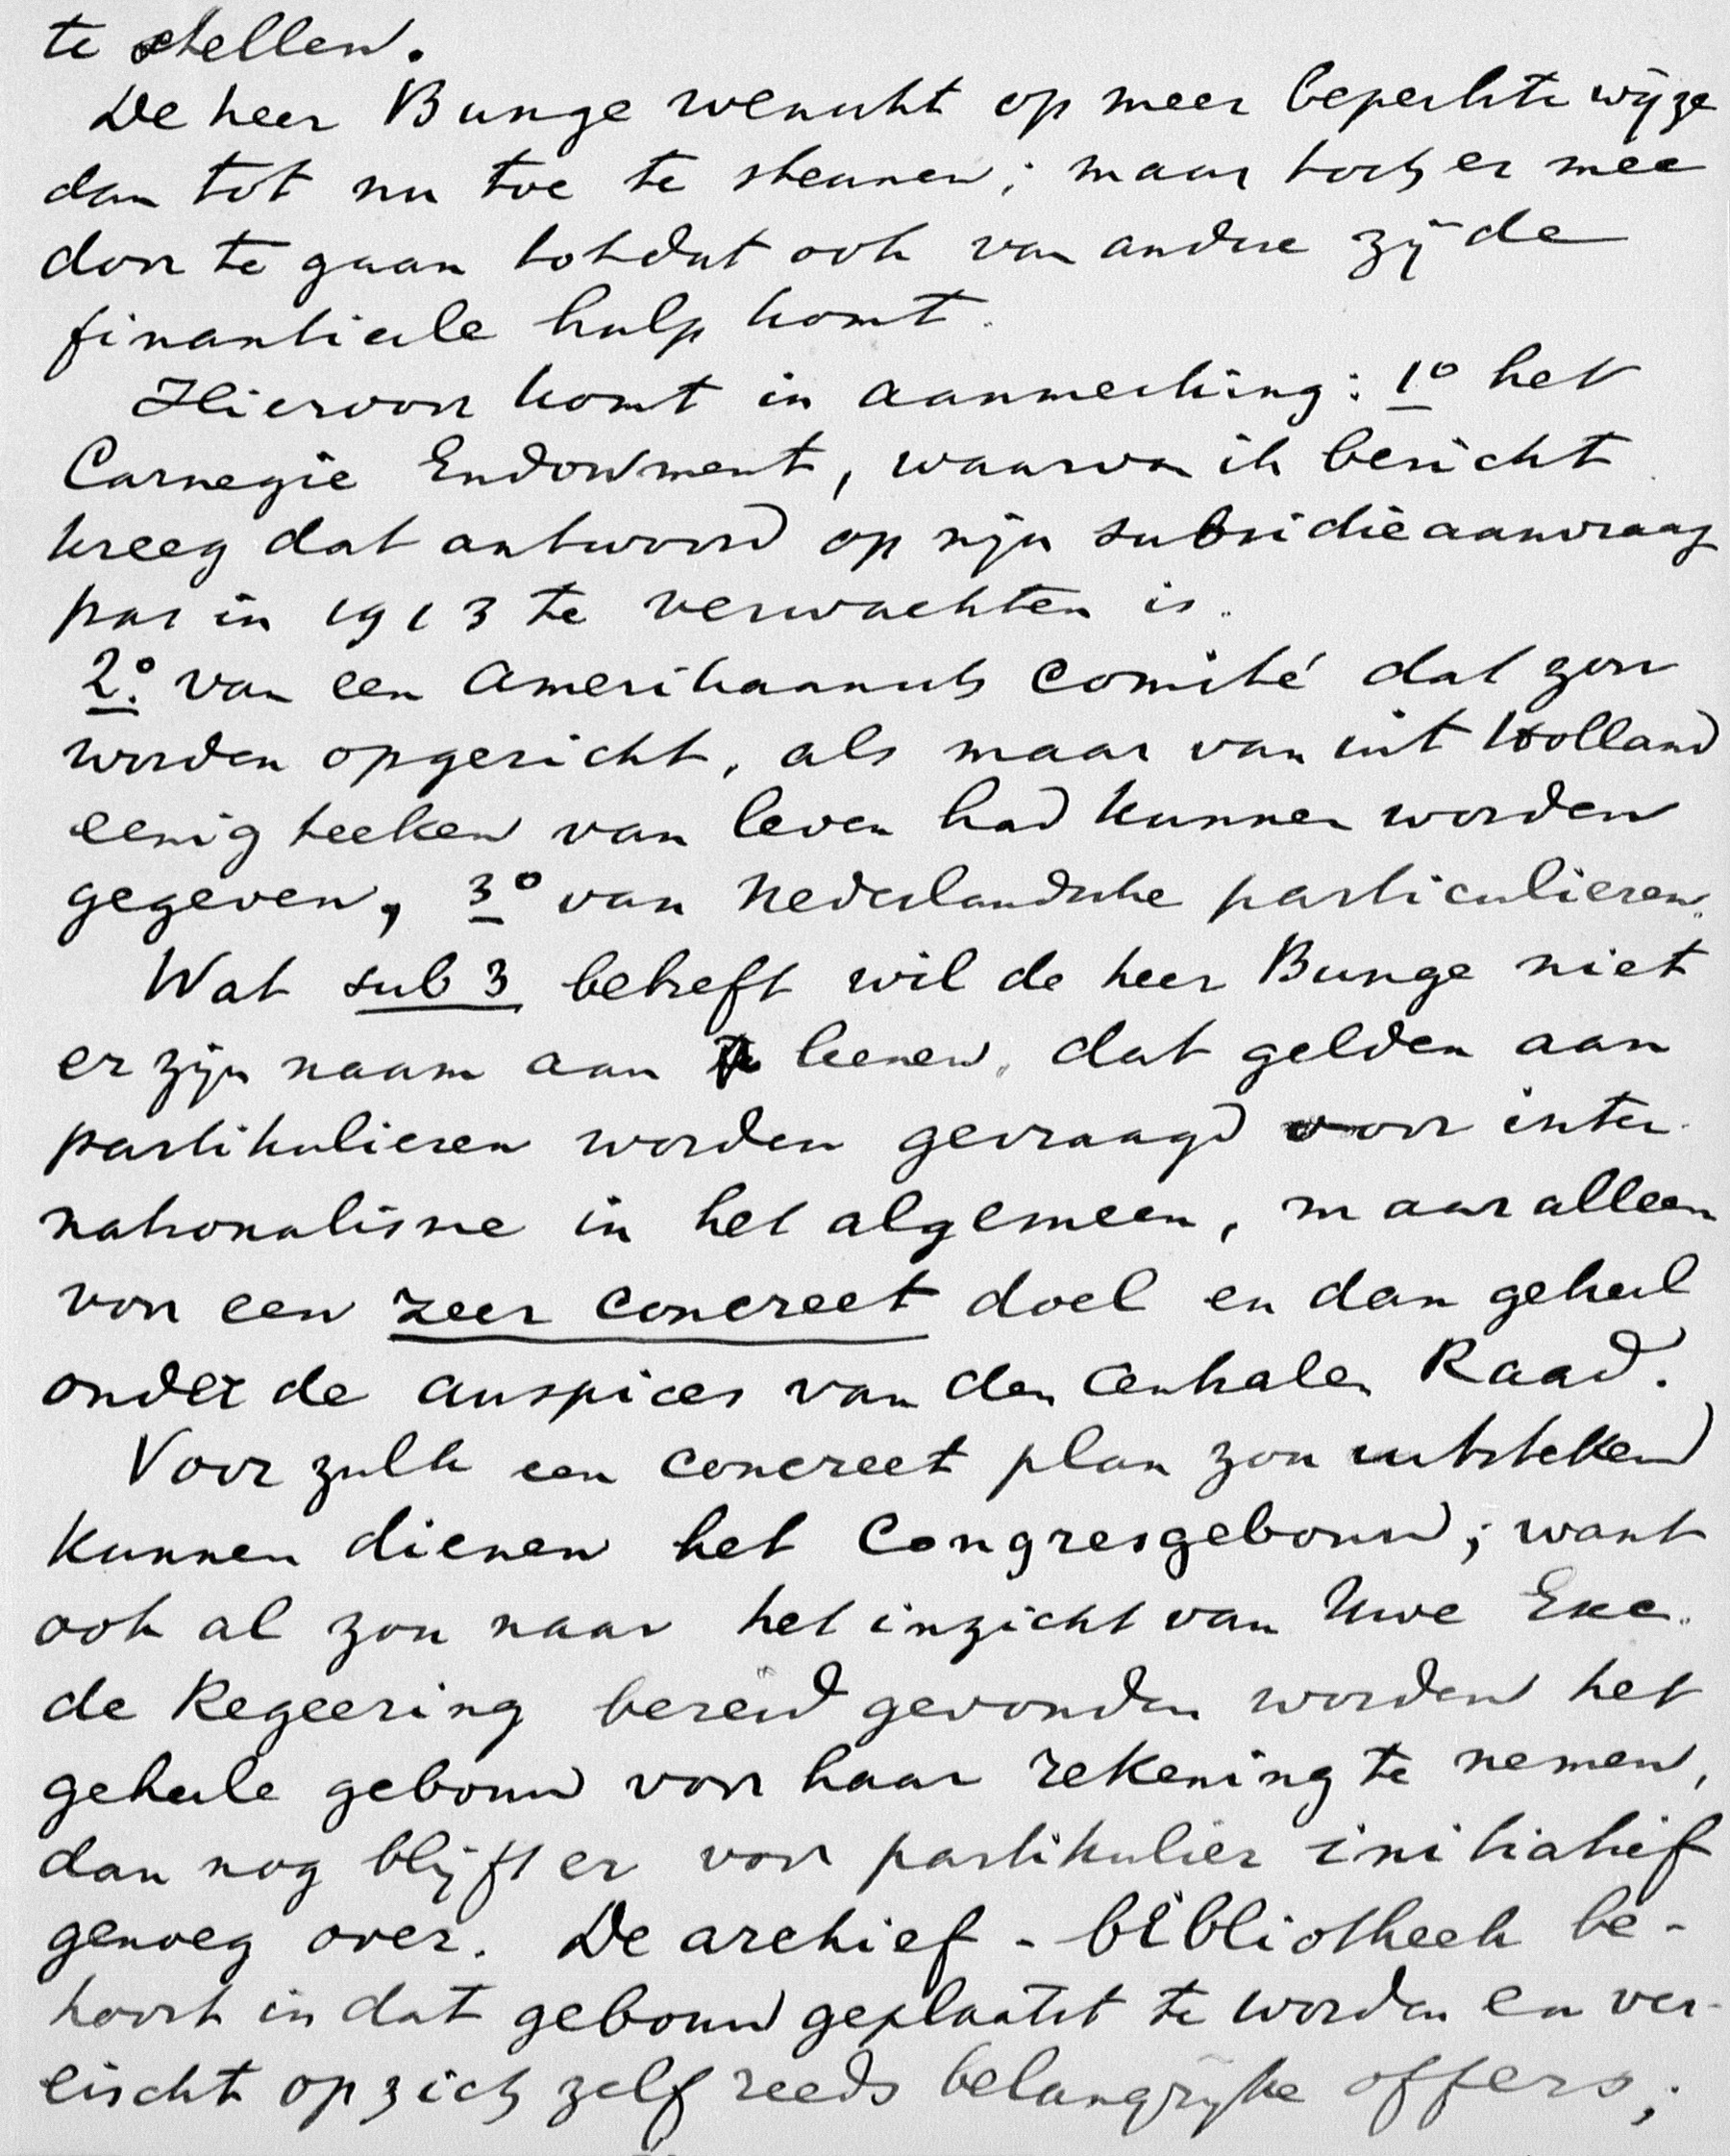 te stellen.
De heer Bunge wenscht op meer beperkte wijze
dan tot nu toe te steunen; maar toch er mee
door te gaan totdat ook van andere zijde
finantieele hulp komt.
Hiervoor komt in aanmerking: 1º het
Carnegie Endowment, waarvan ik bericht
kreeg dat antwoord op mijn subsidieaanvraag
pas in 1913 te verwachten is.
2º. van een Amerikaansch comité dat zou
worden opgericht, als maar van uit Holland
eenig teeken van leven had kunnen worden
gegeven, 3º van Nederlandsche particulieren.
Wat sub 3 betreft wil de heer Bunge niet
er zijn naam aan leenen, dat gelden aan
partikulieren worden gevraagd voor inter-
nationalisme in het algemeen, maar alleen
voor een zeer concreet doel en dan geheel
onder de auspices van den Centralen Raad.
Voor zulk een concreet plan zou uitstekend
kunnen dienen het Congresgebouw; want
ook al zou naar het inzicht van Uwe Exc.
de Regeering bereid gevonden worden het
geheele gebouw voor haar rekening te nemen,
dan nog blijft er voor partikulier initiatief
genoeg over. De archief-bibliotheek be-
hoort in dat gebouw geplaatst te worden en ver-
eischt op zich zelf reeds belangrijke offers;